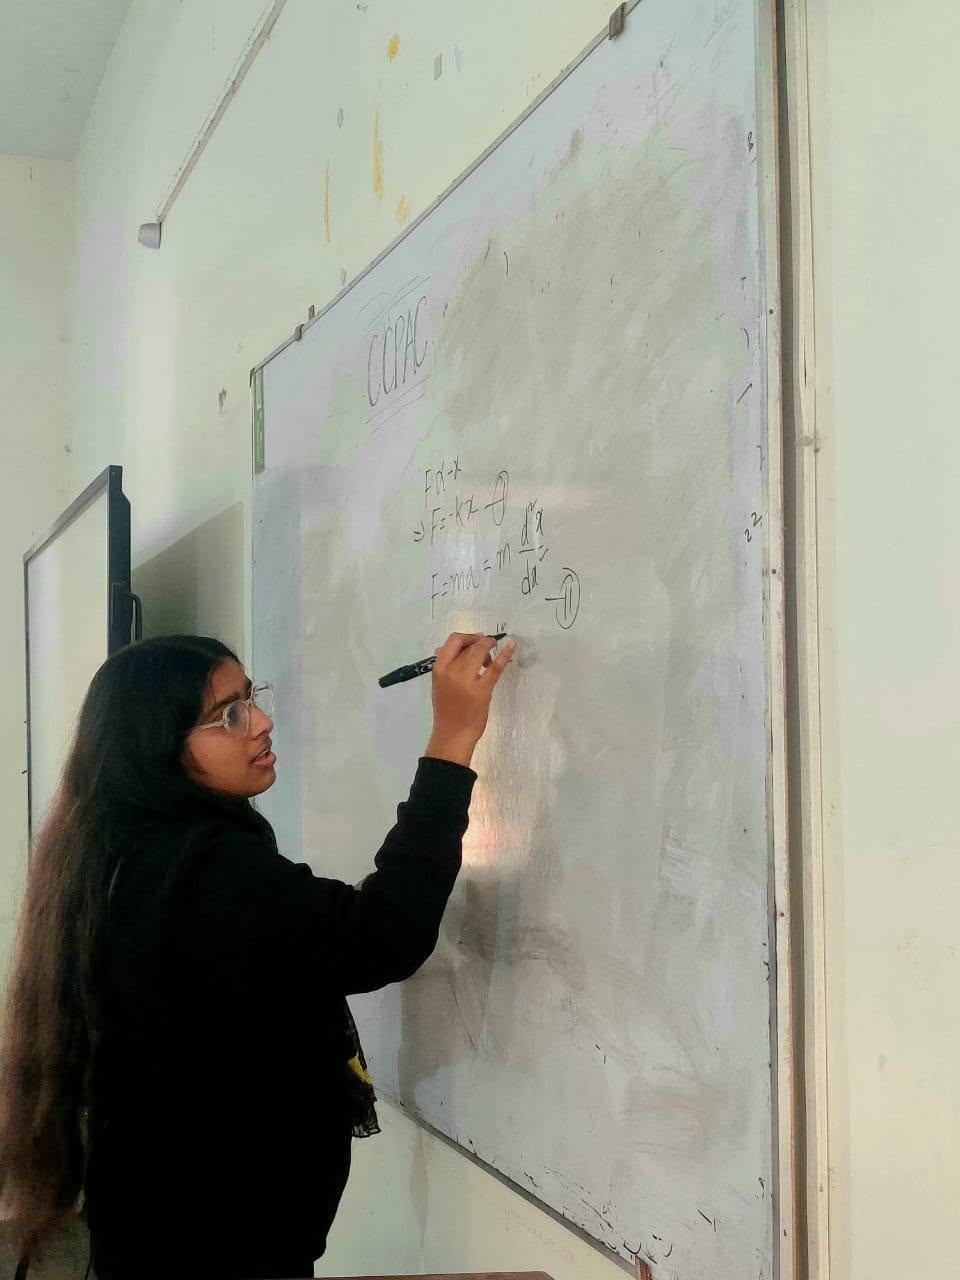 CCPAC
F α -x
⇒ F = -kx — (I)
F = ma = m · d²x/dx² — (II)